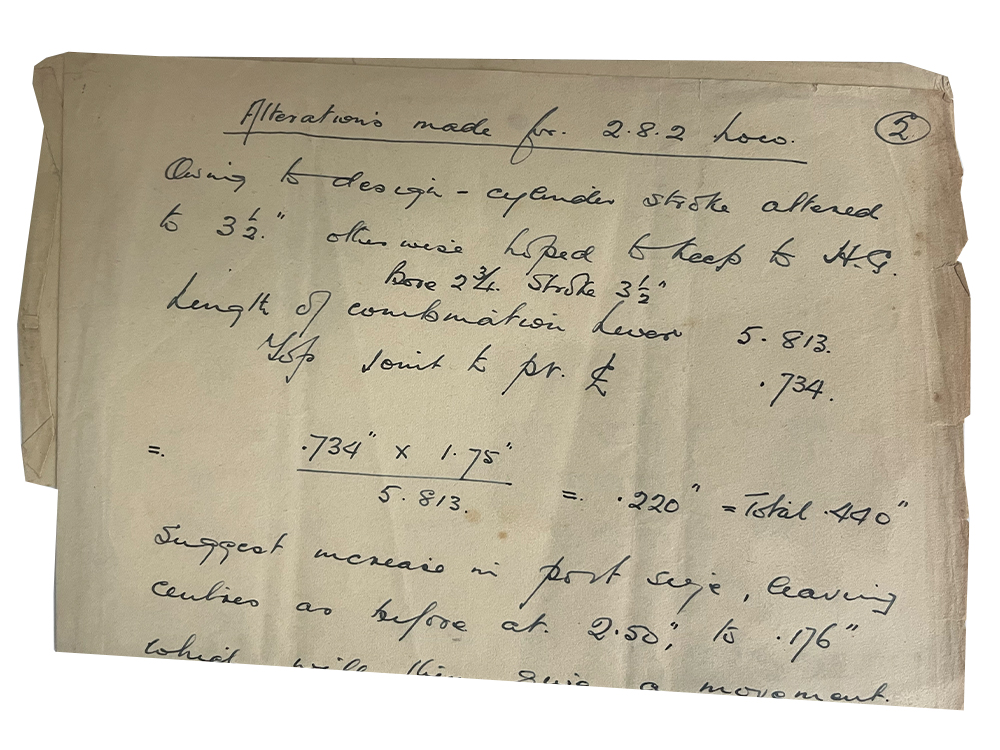 Alterations made for. 2.8.2 Loco. 2
Owing to design - cylinder stroke altered
to 3 1/2." otherwise hoped to keep to H.G.
Bore 2 3/4. Stroke 3 1/2"
Length of combination lever 5.813.
Top Joint to pr. ℄ .734.
=. .734" x 1.75"
5.813. =. .220" = Total .440"
Suggest increase in port size, leaving
centres as before at. 2.50", to .176"
which will then give a movement.